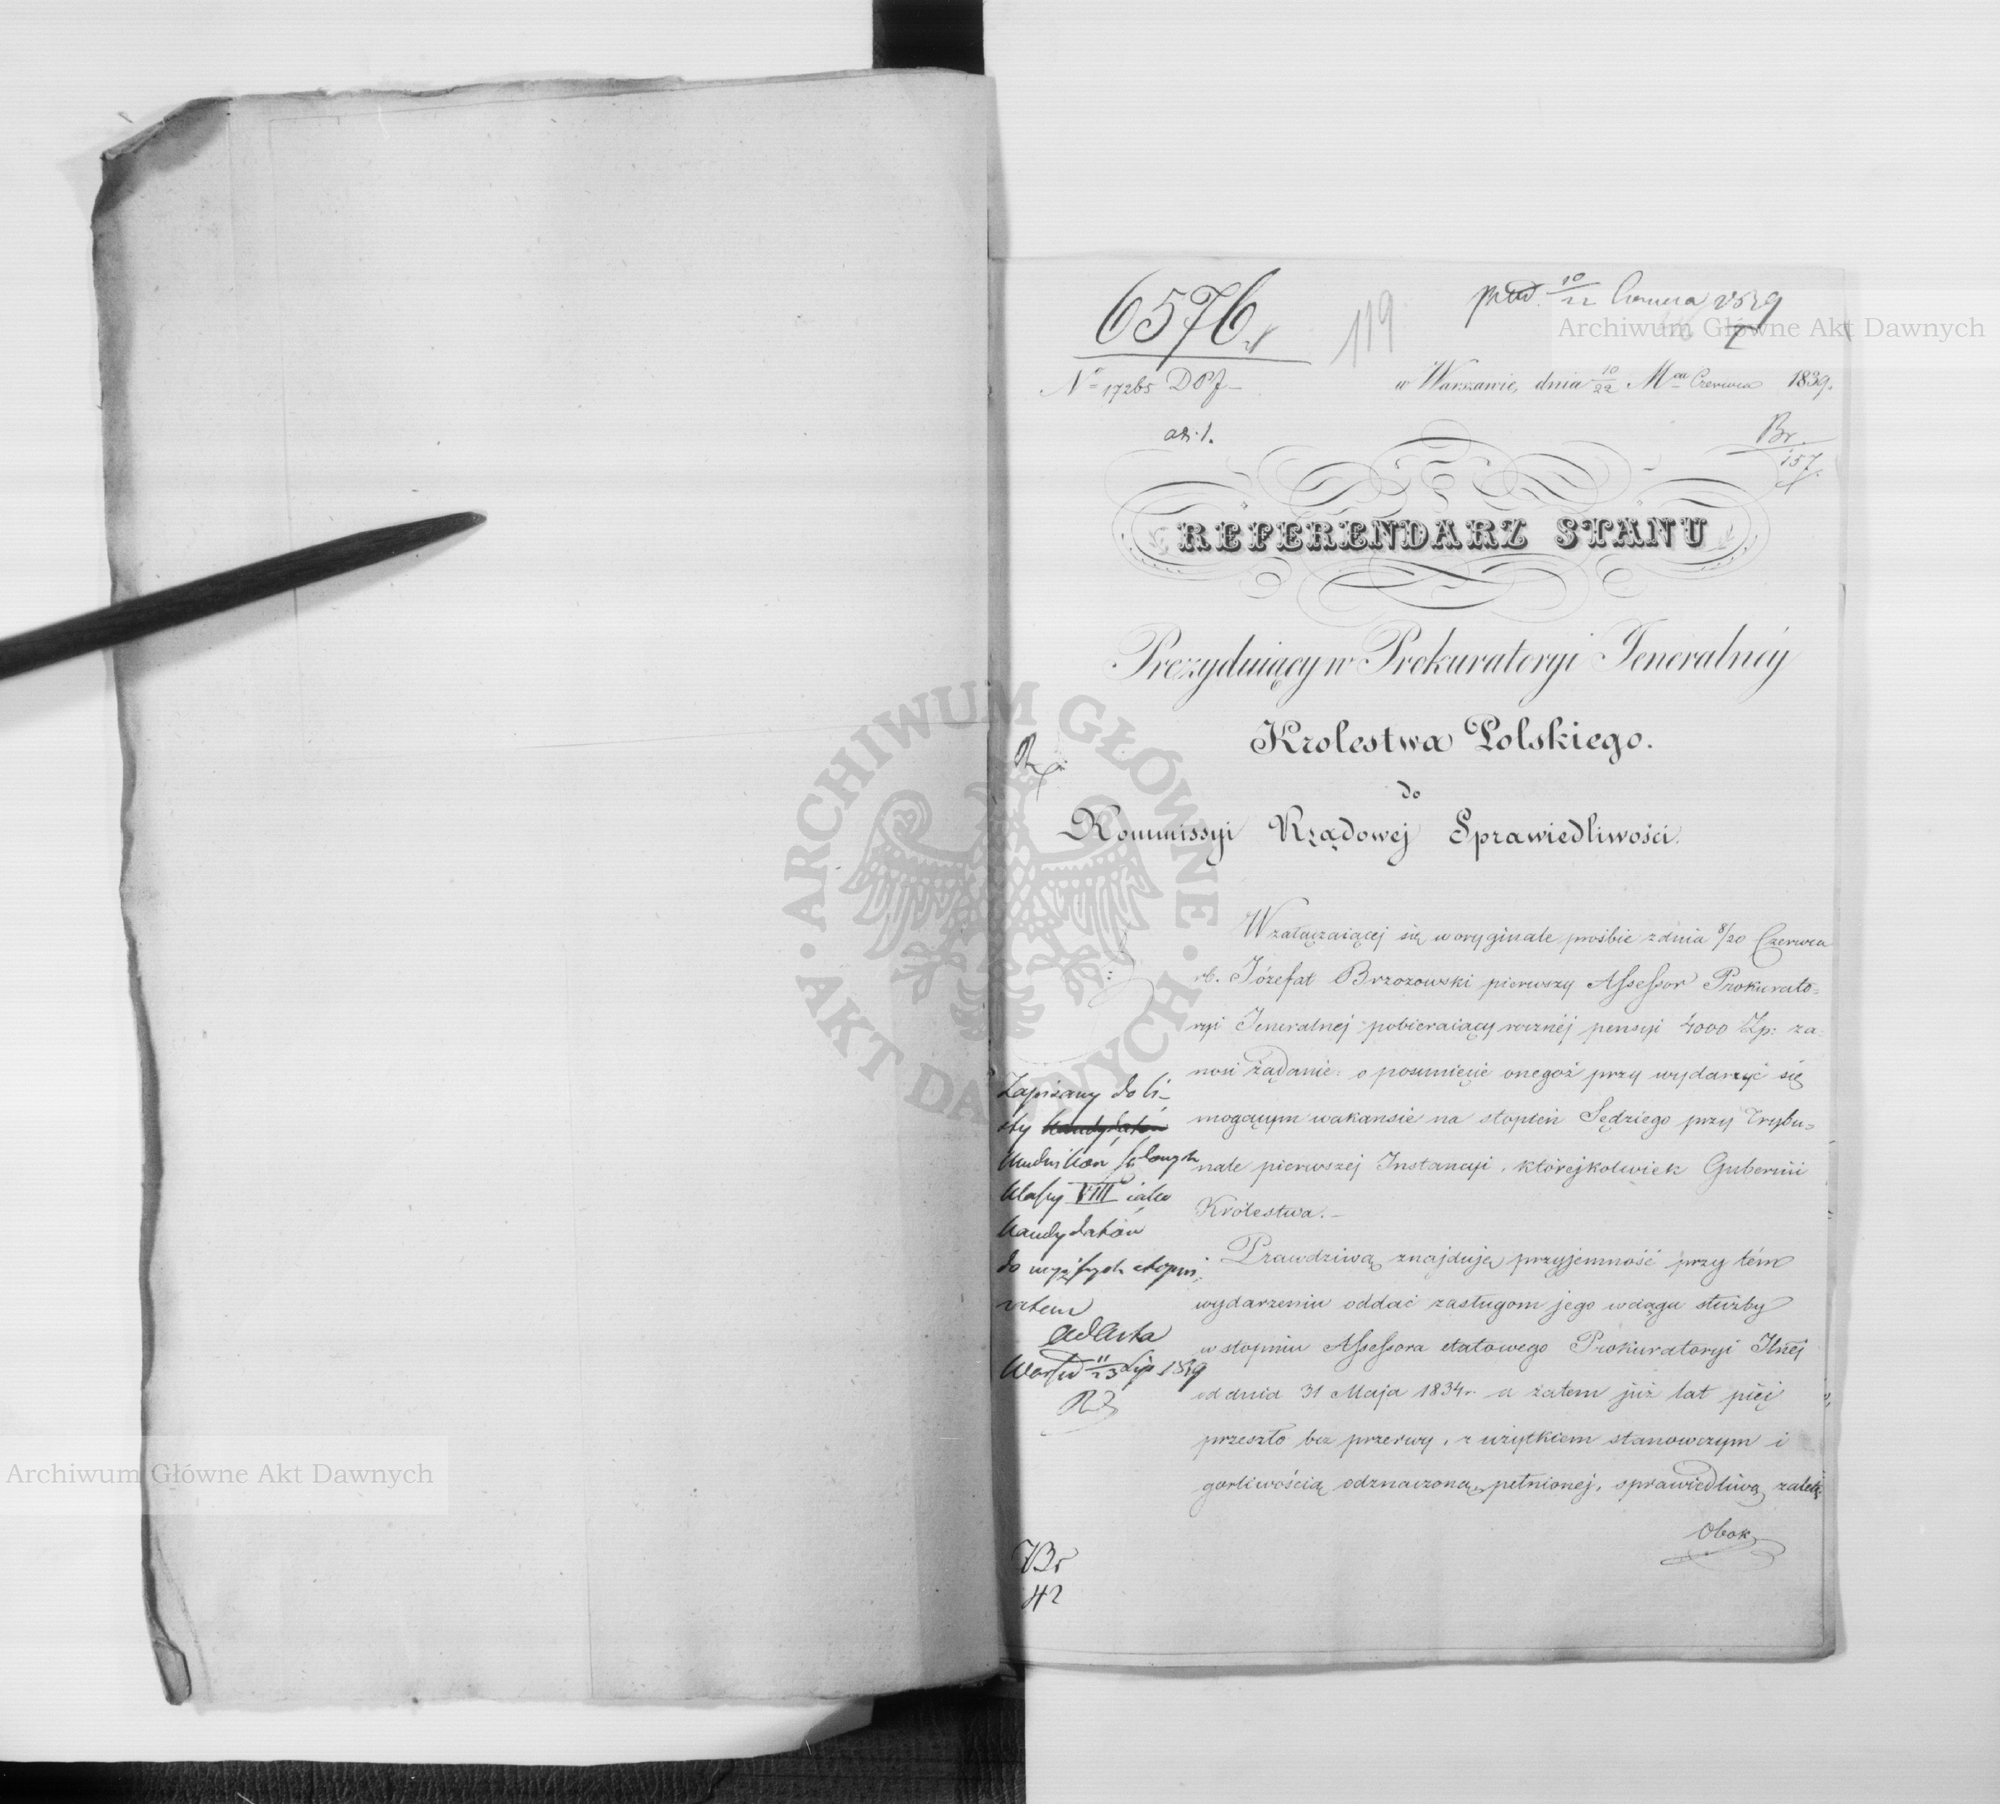 6576
119
10/22 Czerwca 1839
Archiwum Główne Akt Dawnych
No 17265 DPJ
w Warszawie, dnia 10/22 Mca Czerwca 1839.
Br.
157
REFERENDARZ STANU
Prezyduiący w Prokuratoryi Jeneralnéy
Krolestwa Polskiego.
do
Kommissyi Rządowej Sprawiedliwości.
W załączaiącej się w oryginale prośbie z dnia 8/20 Czerwca
rb. Józefat Brzozowski pierwszy Assessor Prokurato=
ryi Jeneralnej pobieraiący rocznéj pensyi 4000 Zp: za=
nosi żądanie o posunięcie onegoż przy wydarzyć się
mogącym wakansie na stopień Sędziego przy Trybu=
nale pierwszéj Instancyi, którejkolwiek Gubernii
Królestwa.
Prawdziwą znajduję przyjemność przy tém
wydarzeniu oddać zasługom jego w ciągu służby
w stopniu Assessora etatowego Prokuratoryi Jlnéj
od dnia 31 Maja 1834 r. a zatem już lat pięć
przeszło bez przerwy, z użytkiem stanowczym i
gorliwością odznaczoną, pełnionej, sprawiedliwą zaletę
Obok
Zapisany do li-
sty kandydatów
klassy VIII iako
kandydatów
do wyższych stopni
ad acta
11/23 Lip 1839
Br
42
ARCHIWUM GŁÓWNE AKT DAWNYCH
Archiwum Główne Akt Dawnych